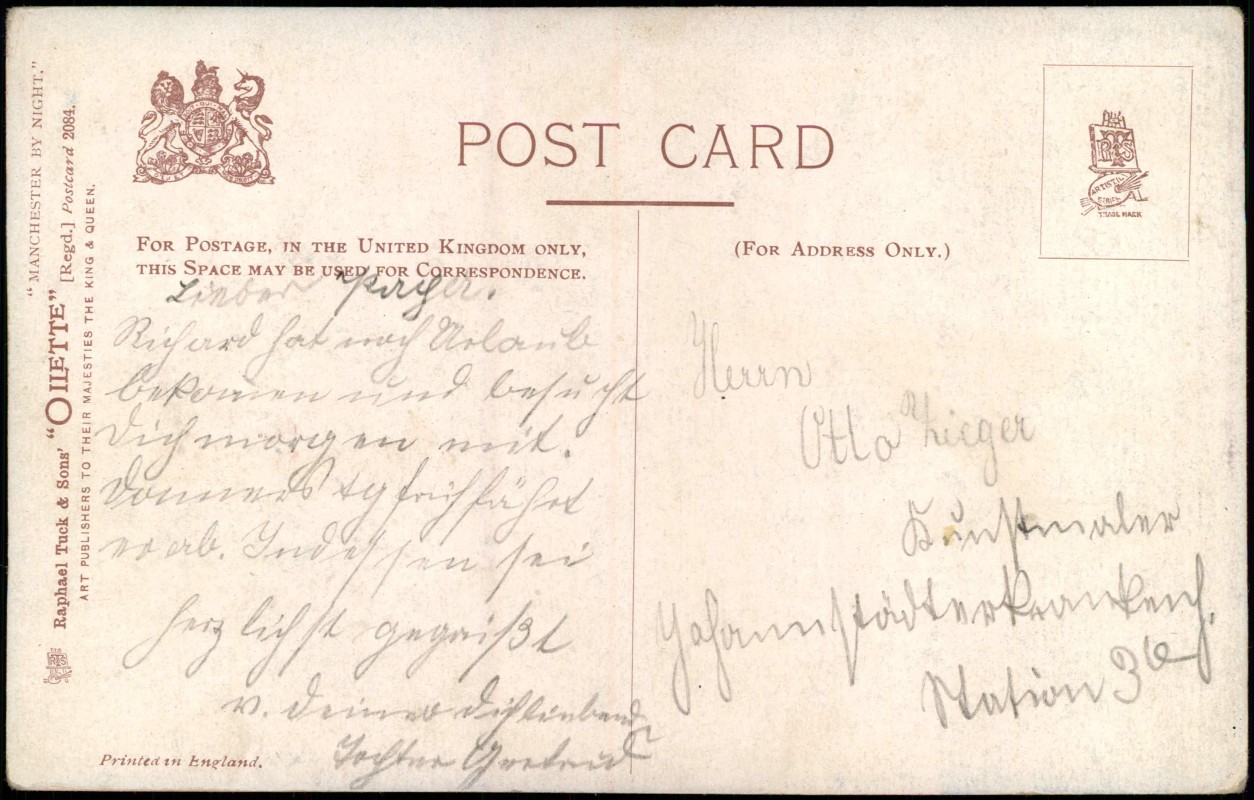 "MANCHESTER BY NIGHT."
Raphael Tuck & Sons' "OILETTE" [Regd.] Postcard 2084.
ART PUBLISHERS TO THEIR MAJESTIES THE KING & QUEEN.
POST CARD
FOR POSTAGE, IN THE UNITED KINGDOM ONLY,
THIS SPACE MAY BE USED FOR CORRESPONDENCE.
(FOR ADDRESS ONLY.)
ARTISTIC
SERIES
TRADE MARK
Lieber
Richard hat noch Urlaub
bekomen und besucht
Dich morgen mit.
Donnerstg früh fährt
er ab. Indessen sei
herzlichst gegrüßt
v. Deiner Dichliebend
Tochter Gertrud
Herrn
Otto Zieger
Kunstmaler
Johannstädterkrankenh.
Station 36
Printed in England.